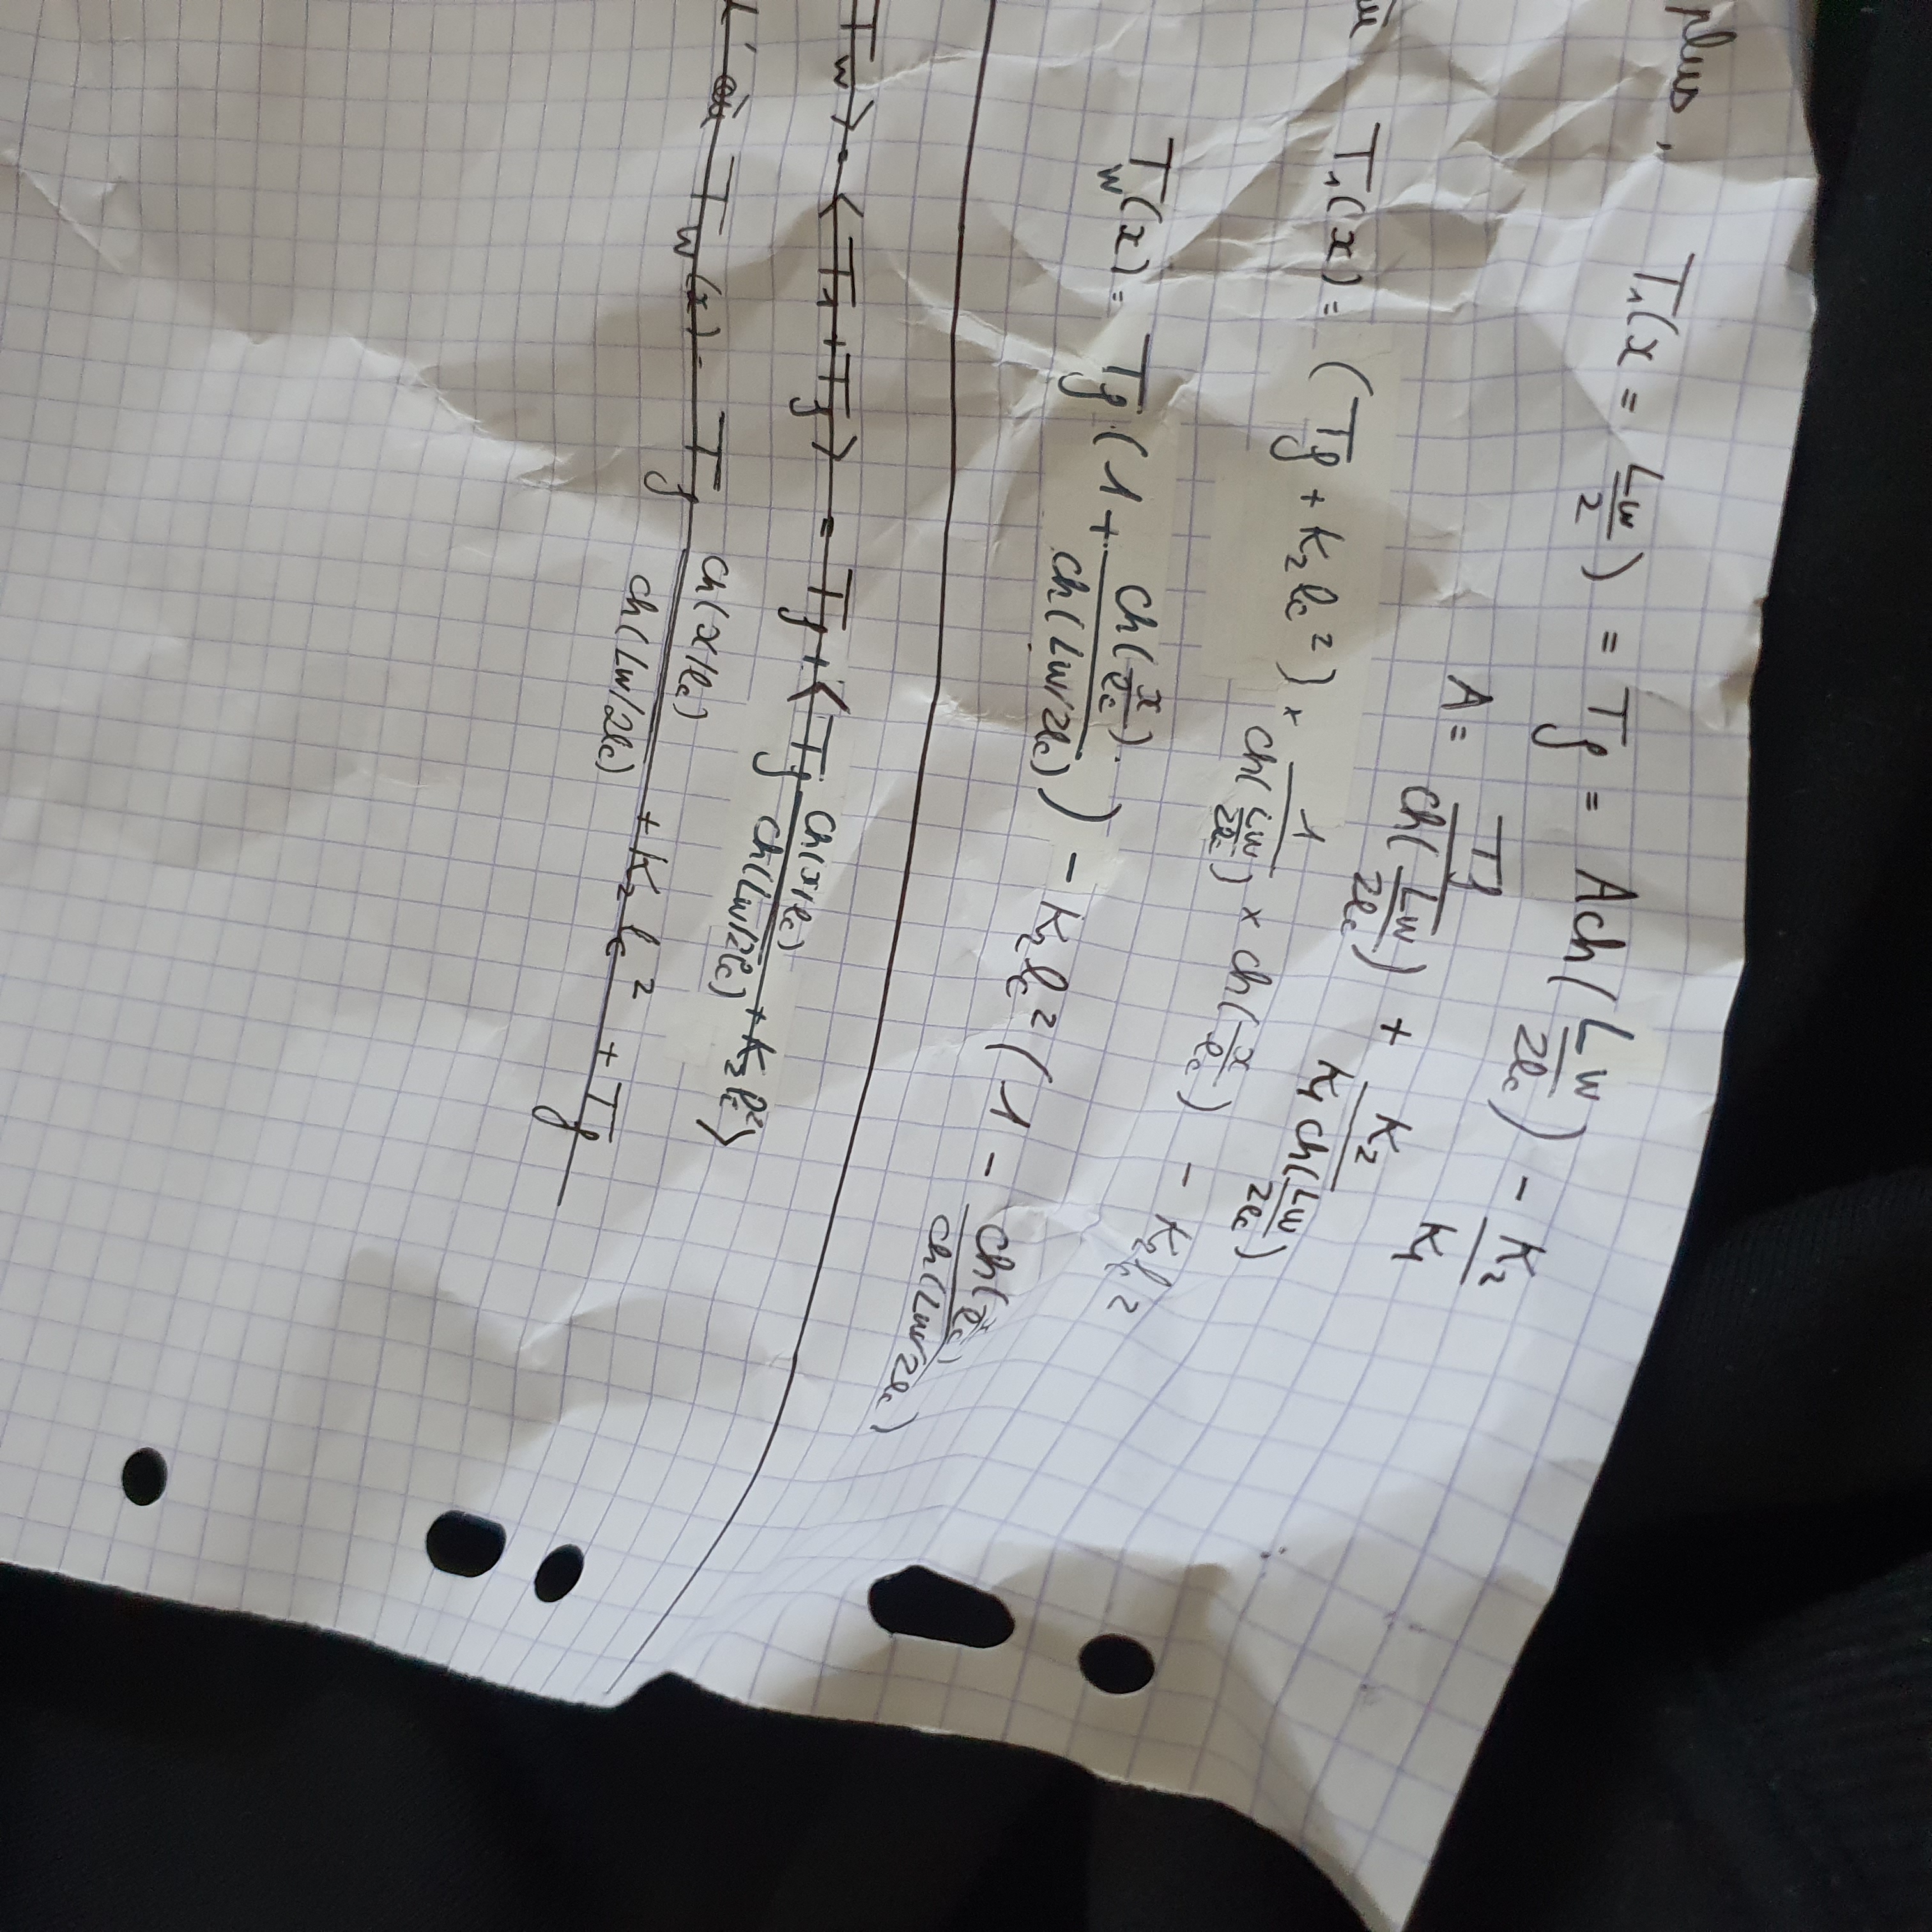 plus, T₁(x = Lw/2) = Tf = A ch(Lw/2lc) - K₂/K₁
A = Tf/ch(Lw/2lc) + K₂/(K₁ ch(Lw/2lc))
T₁(x) = (Tf + K₂lc²) × 1/ch(Lw/2lc) × ch(x/lc) - K₂lc²
Tw(x) = Tf (1 + ch(x/lc)/ch(Lw/2lc)) - K₂lc² (1 - ch(x/lc)/ch(Lw/2lc))
Tw> = <T₁ + Tf> = Tf + <Tf ch(x/lc)/ch(Lw/2lc) + K₂lc²>
Tw(x) = Tf ch(x/lc)/ch(Lw/2lc) + K₂lc² + Tf